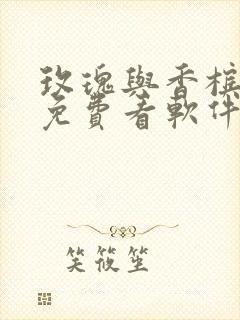 玫瑰與香檳
免費看軟件
笑筱笙